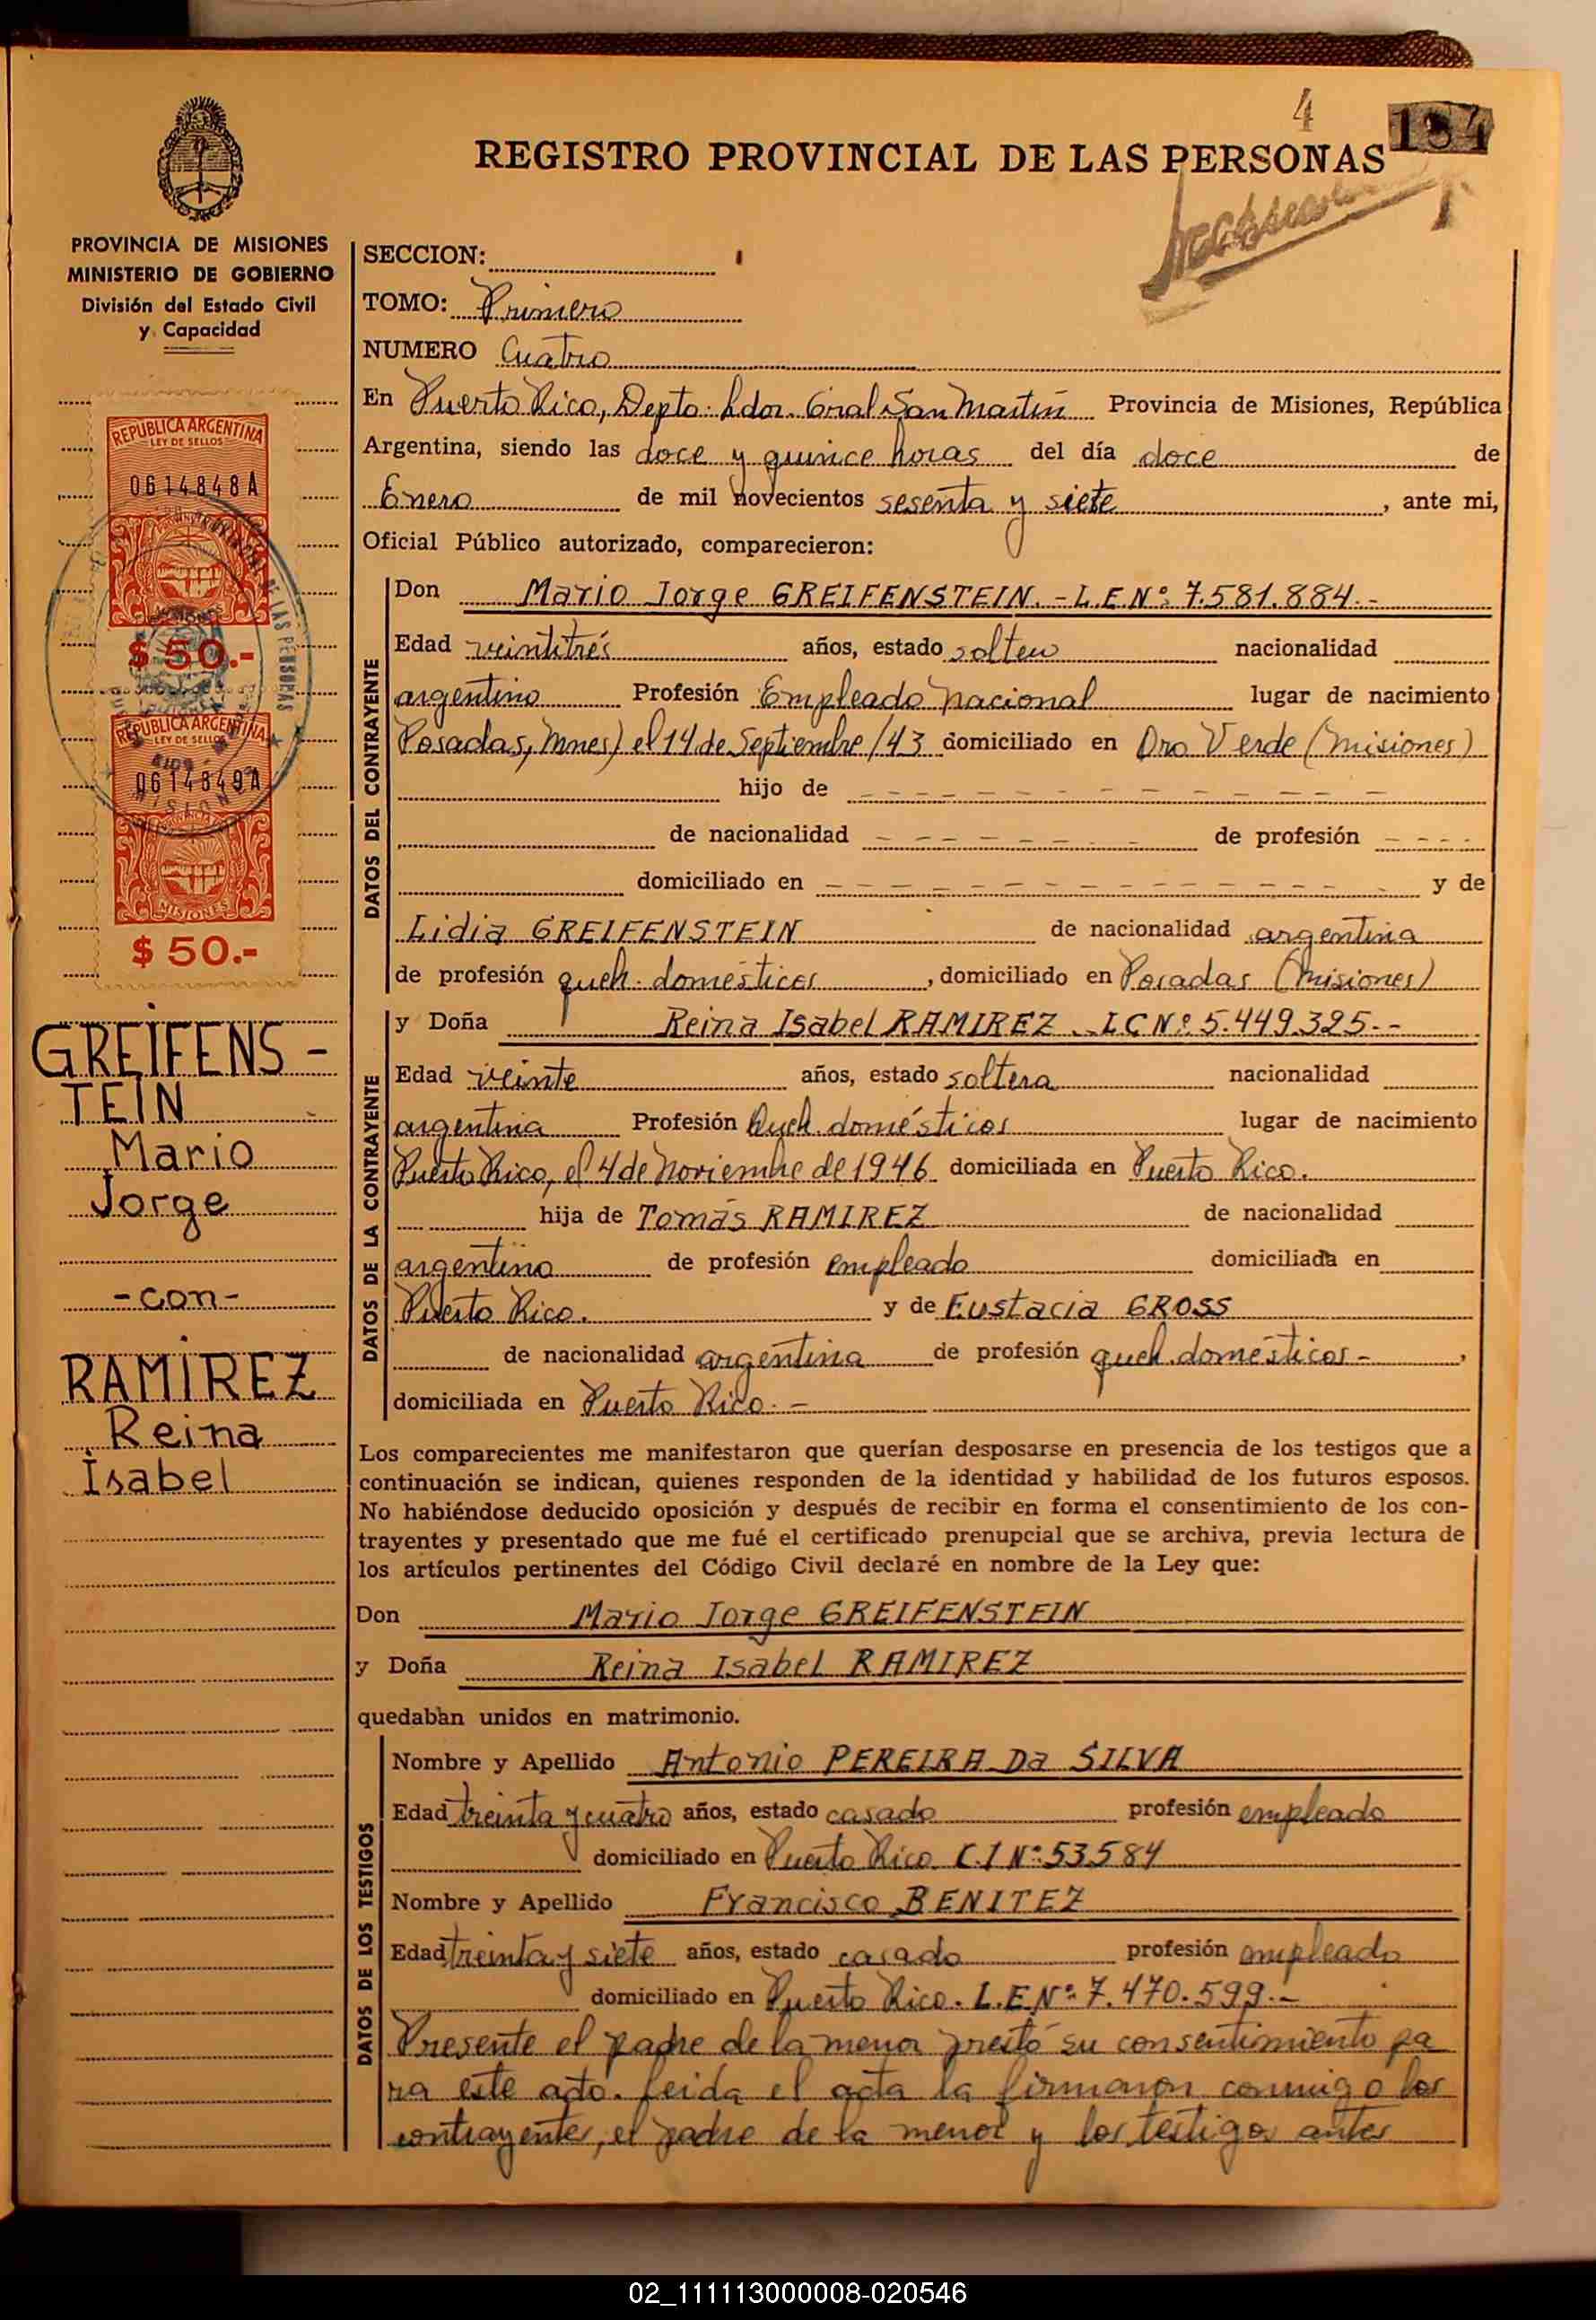 4
184
REGISTRO PROVINCIAL DE LAS PERSONAS
PROVINCIA DE MISIONES
MINISTERIO DE GOBIERNO
División del Estado Civil
y Capacidad
REPUBLICA ARGENTINA
LEY DE SELLOS
0614848A
MISIONES
$ 50.-
REPUBLICA ARGENTINA
LEY DE SELLOS
0614849A
MISIONES
$ 50.-
GREIFENS-
TEIN
Mario
Jorge
-con-
RAMIREZ
Reina
Isabel
SECCION:
TOMO: Primero
NUMERO Cuatro
En Puerto Rico, Depto. Ldor. Gral San Martín Provincia de Misiones, República
Argentina, siendo las doce y quince horas del día doce de
Enero de mil novecientos sesenta y siete, ante mi,
Oficial Público autorizado, comparecieron:
DATOS DEL CONTRAYENTE
Don Mario Jorge GREIFENSTEIN.-L.E Nº 7.581.884.-
Edad veintitrés años, estado soltero nacionalidad
argentino Profesión Empleado Nacional lugar de nacimiento
Posadas, Mnes) el 14 de Septiembre/43 domiciliado en Oro Verde (Misiones)
hijo de
de nacionalidad de profesión
domiciliado en y de
Lidia GREIFENSTEIN de nacionalidad argentina
de profesión queh. domésticos, domiciliado en Posadas (Misiones)
DATOS DE LA CONTRAYENTE
y Doña Reina Isabel RAMIREZ. LC Nº 5.449.325.-
Edad veinte años, estado soltera nacionalidad
argentina Profesión Queh. domésticos lugar de nacimiento
Puerto Rico, el 4 de Noviembre de 1946 domiciliada en Puerto Rico.
hija de Tomás RAMIREZ de nacionalidad
argentino de profesión empleado domiciliada en
Puerto Rico. y de Eustacia GROSS
de nacionalidad argentina de profesión queh. domésticos-,
domiciliada en Puerto Rico.-
Los comparecientes me manifestaron que querían desposarse en presencia de los testigos que a
continuación se indican, quienes responden de la identidad y habilidad de los futuros esposos.
No habiéndose deducido oposición y después de recibir en forma el consentimiento de los con-
trayentes y presentado que me fué el certificado prenupcial que se archiva, previa lectura de
los artículos pertinentes del Código Civil declaré en nombre de la Ley que:
Don Mario Jorge GREIFENSTEIN
y Doña Reina Isabel RAMIREZ
quedaban unidos en matrimonio.
DATOS DE LOS TESTIGOS
Nombre y Apellido Antonio PEREIRA Da SILVA
Edad treinta y cuatro años, estado casado profesión empleado
domiciliado en Puerto Rico C.I Nº 53584
Nombre y Apellido Francisco BENITEZ
Edad treinta y siete años, estado casado profesión empleado
domiciliado en Puerto Rico. L.E Nº 7.470.599.-
Presente el padre de la menor prestó su consentimiento pa
ra este acto. Leida el acta la firmaron conmigo los
contrayentes, el padre de la menor y los testigos antes
02_111113000008-020546